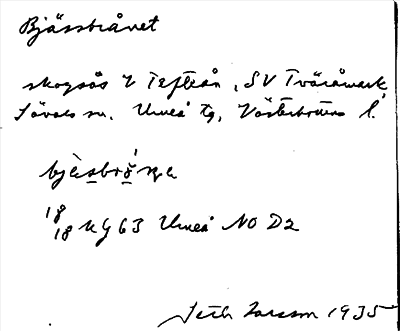 Bjässbrånet
skogsås V Tefteån, SV Tväråmark,
Sävars sn. Umeå tg, Västerbottens l.
18/18 NG 63 Umeå NO D2
Seth Larsson 1935